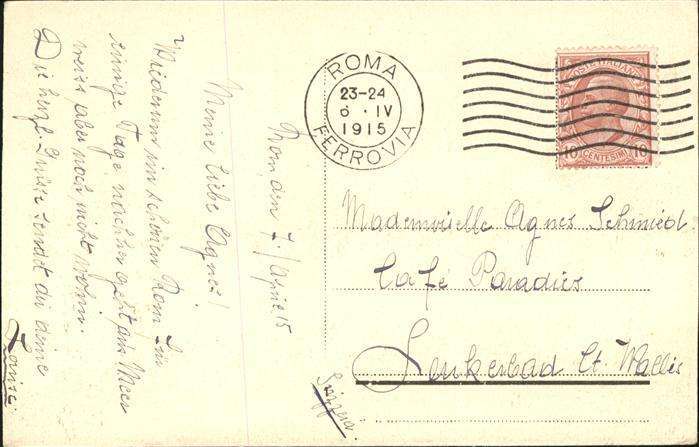 ROMA
23-24
6 · IV
1915
FERROVIA
POSTE ITALIANE
10 CENTESIMI 10
Rom, den 7/April 15
Meine liebe Agnes!
Wiederum im schönen Rom. In
einige Tage nachher geht ans Meer
weiss aber noch nicht wohin.
Die herzl. Grüsse sendet dir deine
Mademoiselle Agnes Schmied
Café Paradies
Leukerbad Ct. Wallis
Svizzera